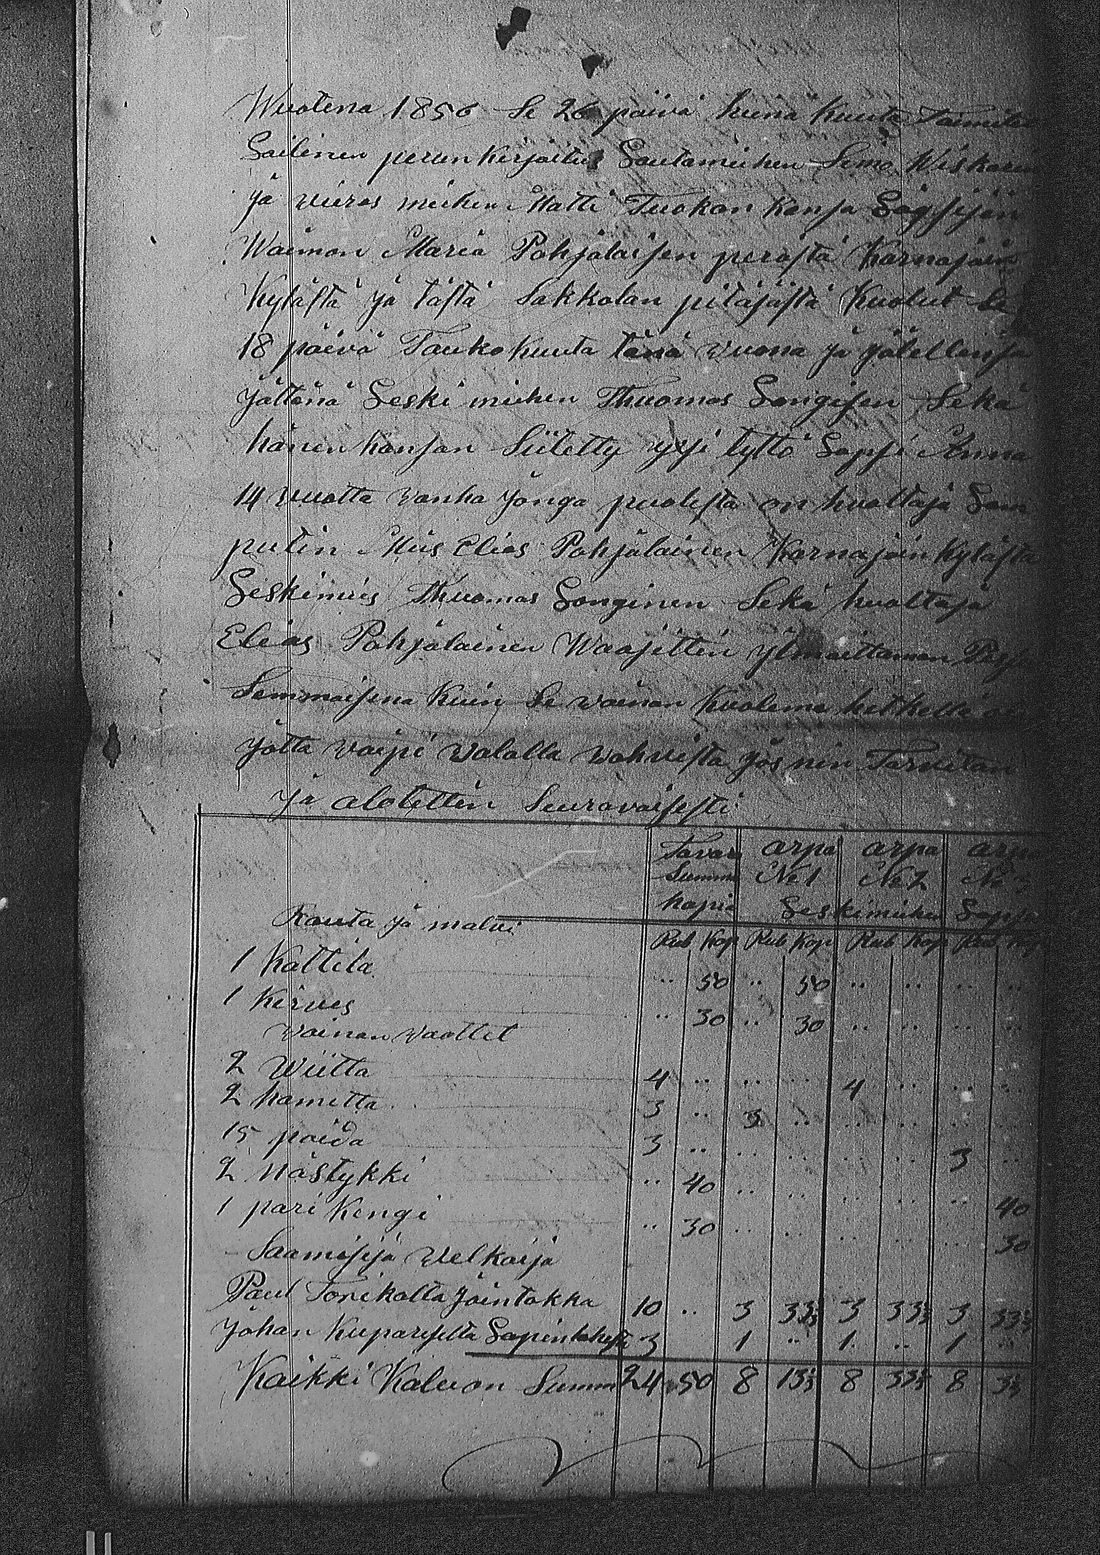 Wuotena 1856 Se 26 päivä heinä Kuuta Toimitet
Soilinen perun Kirjoitus Sautamiehen Simo Wiskarin
ja vieras miehen Matti Tuokon Kansa
Waimon Maria Pohjalaisen perästä Karnajoin
Kylästä ja tästä Sakkolan pitäjästä Kuolut Se
18 päivä Tauko Kuuta tänä vuona ja jälellensä
jättänä Leski miehen Thuomas Songisen Seka
hänen kansan Siitetty yxsi tyttö Lapsi Anna
14 vuotta vanha jonga puolesta on huoltaja Sam
putin Mies Elias Pohjalainen Karnajoin Kylästä
Leskimies Thuomas Songinen Sekä huoltaja
Elias Pohjalainen Waajittin ylmoittaman
Semmoisena Kuin Se vainan Kuolema hetkellä
jotta voipi valalla vahvista jos niin Tarvitan
ja alotettin Seuravaisesti
Tavar arpa arpa arpa
Summa No 1 No 2 No 3
hapia Leskimiehen Lapse
Rauta ja malmi Rub Kop Rub Kop Rub Kop Rub Kop
1 Kattila .. 50 .. 50 .. .. .. ..
1 Kirves .. 30 .. 30 .. .. .. ..
vainan vaattet
2 Wiitta 4 .. .. .. 4 .. .. ..
2 hametta 3 .. 3 .. .. .. .. ..
15 paida 3 .. .. .. .. .. 3 ..
2 nästykki .. 40 .. .. .. .. .. 40
1 pari Kengi .. 30 .. .. .. .. .. 30
Saamisija Velkoija
Paul Torikalta 10 .. 3 33⅓ 3 33⅓ 3 33⅓
Johan Kipariselta 3 1 .. 1 .. 1 ..
Kaikki Kaluon Summa 24 50 8 13⅓ 8 33⅓ 8 3⅓